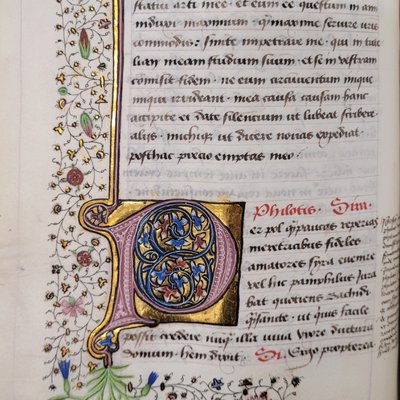 statui arti mee · et eum ee questum ĩ am
induxi maxumum · qͫ maxime seruire uris
commodis: sinite impetrare me, qui in tute
lam meam studium suum · et se in uestram
comisit fidem · ne eum circuuentum inique
iniqui irrideant · mea causa causam hanc
accipite et date silencium ut lubeat scribere
alijs · michiqz ut dicere nouas expediat
posthac precio emptas meo ·
Philotis · Sira ·
er pol qͫ paucos reperias
meretricibus fideles
amatores syra euenire
vel hic pamphilus iura
bat quotiens bachidi
qͫ sancte · ut quis facile
possit credere nuqͫ illa uiua uxore ducturũ
domum · hem duxit · Si · Ergo propterea